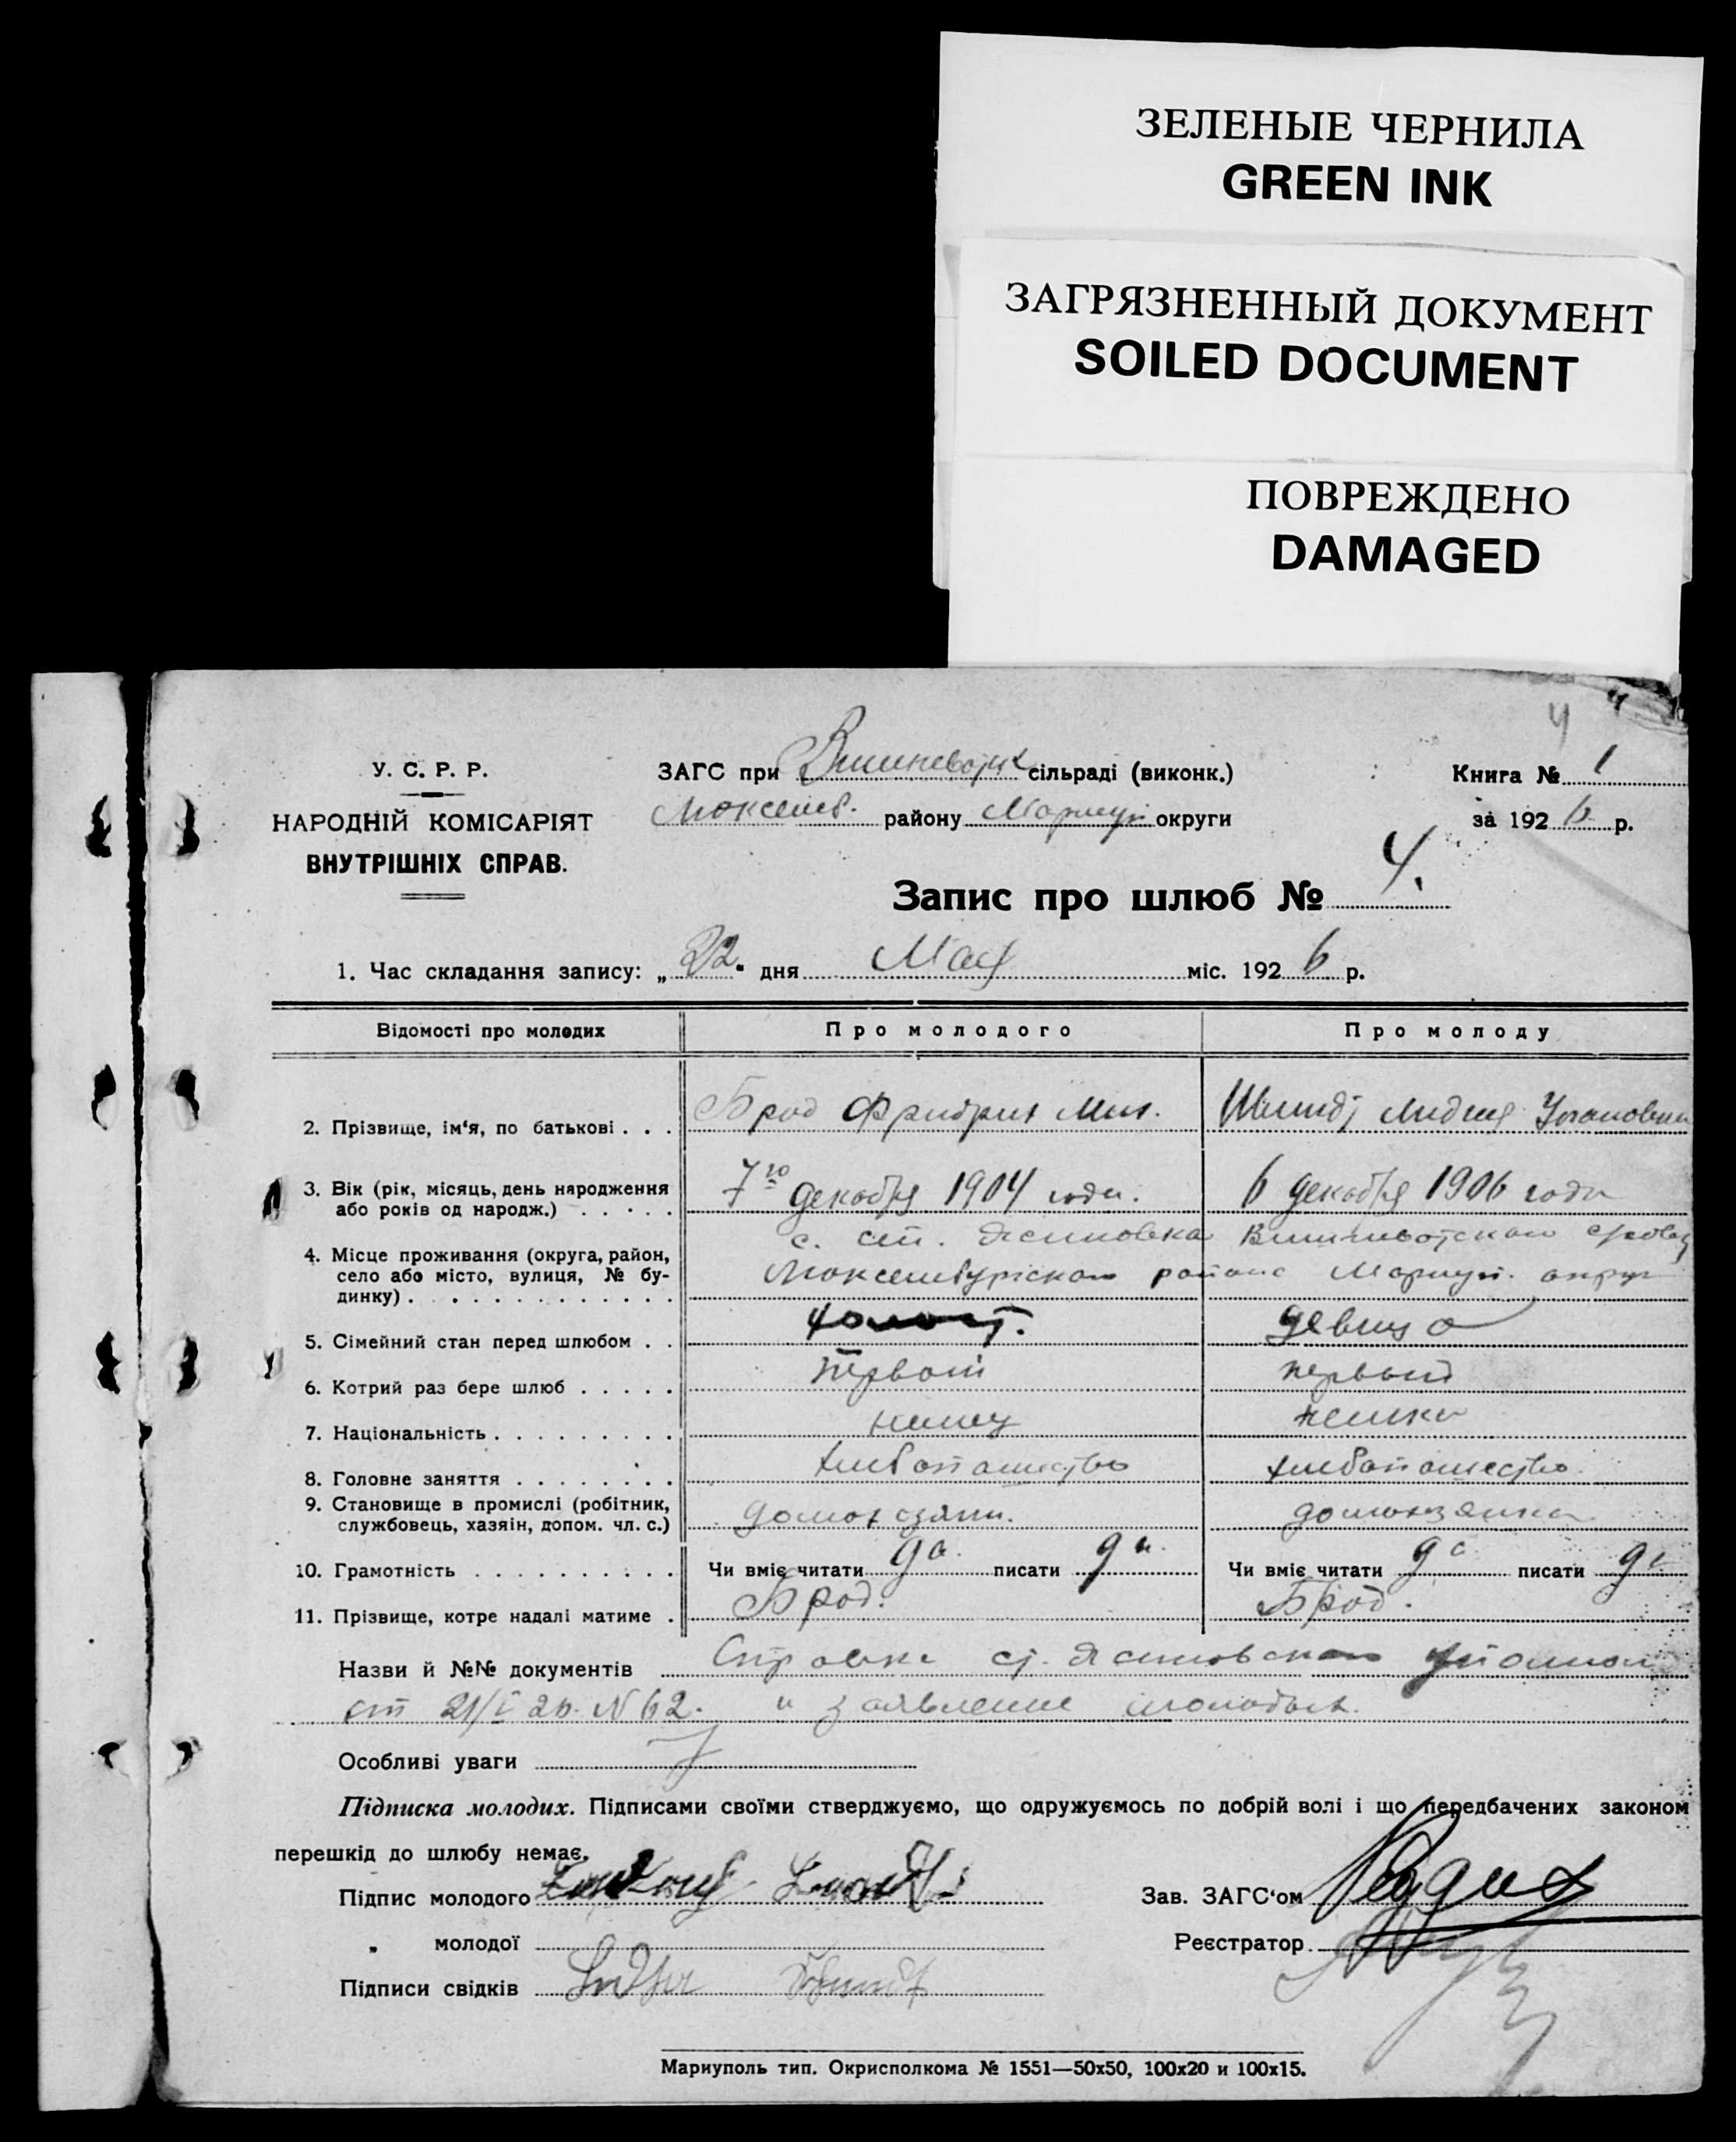 ЗЕЛЕНЫЕ ЧЕРНИЛА
GREEN INK
ЗАГРЯЗНЕННЫЙ ДОКУМЕНТ
SOILED DOCUMENT
ПОВРЕЖДЕНО
DAMAGED
4
У. С. Р. Р.
НАРОДНІЙ КОМІСАРІЯТ
ВНУТРІШНІХ СПРАВ.
ЗАГС при сільраді (виконк.)
району Мариуп. округи
Книга № 1
за 1926 р.
Запис про шлюб № 4.
1. Час складання запису: „22" дня Мая міс. 1926 р.
Відомості про молодих Про молодого Про молоду
2. Прізвище, ім'я, по батькові . . . Брод Фридрих Мих. Шмидт Лидия
3. Вік (рік, місяць, день народження 7го декабря 1904 года. 6 декабря 1906 года
або років од народж.) . . . . .
4. Місце проживання (округа, район, с. Ясиновка
село або місто, вулиця, № бу- района Мариуп. округ
динку) . . . . . . . . . . . .
5. Сімейний стан перед шлюбом . . холост. девица
6. Котрий раз бере шлюб . . . . . первый первый
7. Національність . . . . . . . . . немец немка
8. Головне заняття . . . . . . . . хлебопашество хлебопашество
9. Становище в промислі (робітник,
службовець, хазяін, допом. чл. с.) домохозяин. домохозяйка
10. Грамотність . . . . . . . . . . Чи вміє читати да. писати да. Чи вміє читати да писати да
11. Прізвище, котре надалі матиме . Брод. Брод.
Назви й №№ документів Справка
от 21/V 26. N 62. и заявление молодых.
Особливі уваги
Підписка молодих. Підписами своїми стверджуємо, що одружуємось по добрій волі і що передбачених законом
перешкід до шлюбу немає.
Підпис молодого
Зав. ЗАГС'ом
„ молодої
Реєстратор
Підписи свідків
Мариуполь тип. Окрисполкома № 1551—50х50, 100х20 и 100х15.